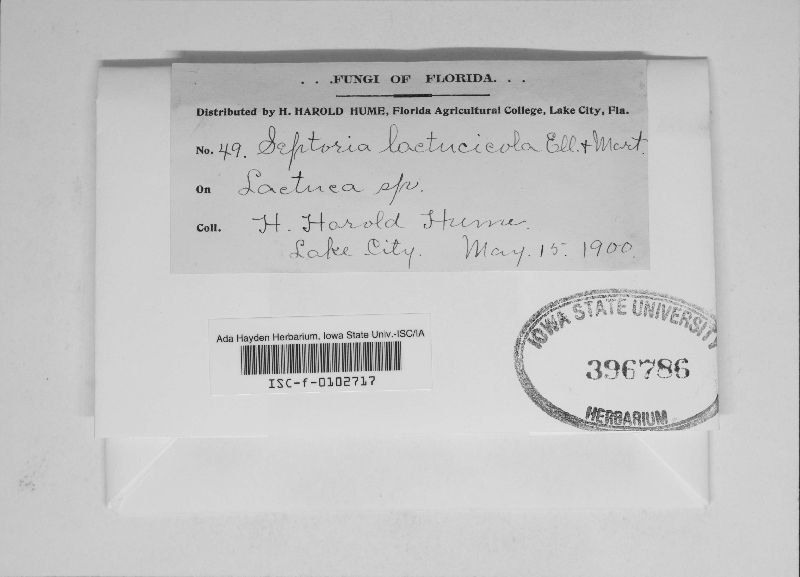 . . .FUNGI OF FLORIDA. . .
Distributed by H. HAROLD HUME, Florida Agricultural College, Lake City, Fla.
No. 49. Septoria lactucicola Ell. & Mart.
On Lactuca sp.
Coll. H. Harold Hume.
Lake City. May. 15. 1900.
Ada Hayden Herbarium, Iowa State Univ.-ISC/IA
ISC-f-0102717
IOWA STATE UNIVERSITY
396786
HERBARIUM